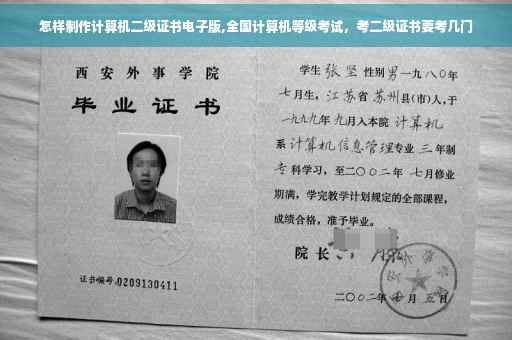 怎样制作计算机二级证书电子版,全国计算机等级考试，考二级证书要考几门
西安外事学院
毕业证书
证书编号:0209130411
学生 张坚 性别 男 一九八〇年
七月生，江苏省 苏州县(市)人,于
一九九九年 九月入本院 计算机
系 计算机信息管理专业 三 年制
专 科学习，至二〇〇二年 七月修业
期满，学完教学计划规定的全部课程，
成绩合格，准予毕业。
院长
二〇〇二年 七 月 五 日